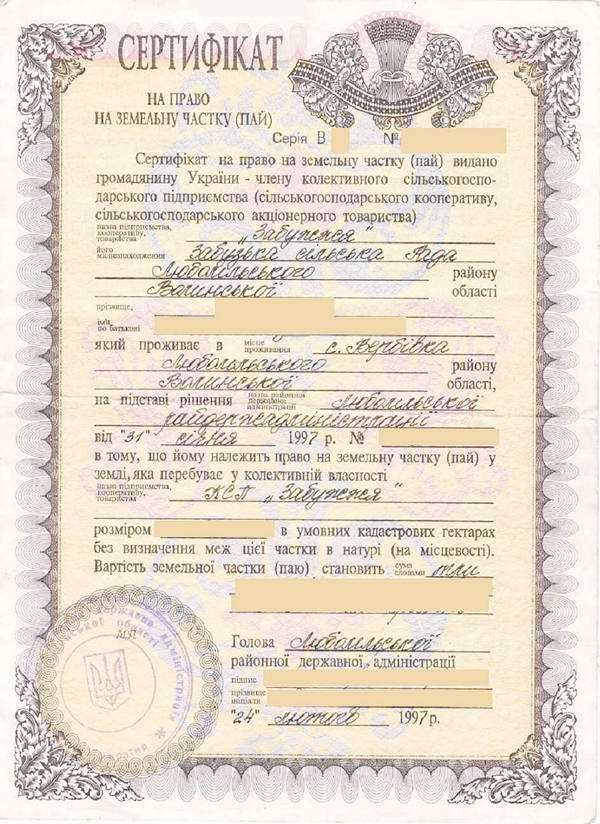 СЕРТИФІКАТ
НА ПРАВО
НА ЗЕМЕЛЬНУ ЧАСТКУ (ПАЙ)
Серія В №
Сертифікат на право на земельну частку (пай) видано
громадянину України - члену колективного сільськогоспо-
дарського підприємства (сільськогосподарського кооперативу,
сільськогосподарського акціонерного товариства)
назва підприємства,
кооперативу,
товариства „Забужжя"
його
місцезнаходження Забузька сільська Рада
Любомльського району
Волинської області
прізвище,
ім'я,
по батькові
який проживає в місце
проживання с. Вербівка
Любомльського району
Волинської області,
на підставі рішення назва районної
державної
адміністрації Любомльської
райдержадміністрації
від "31" січня 1997 р. №
в тому, що йому належить право на земельну частку (пай) у
землі, яка перебуває у колективній власності
назва підприємства,
кооперативу,
товариства КСП „Забужжя"
розміром в умовних кадастрових гектарах
без визначення меж цієї частки в натурі (на місцевості).
Вартість земельної частки (паю) становить сума
словами
Голова Любомльської
районної державної адміністрації
підпис
прізвище
ініціали
"24" лютого 1997 р.
МП